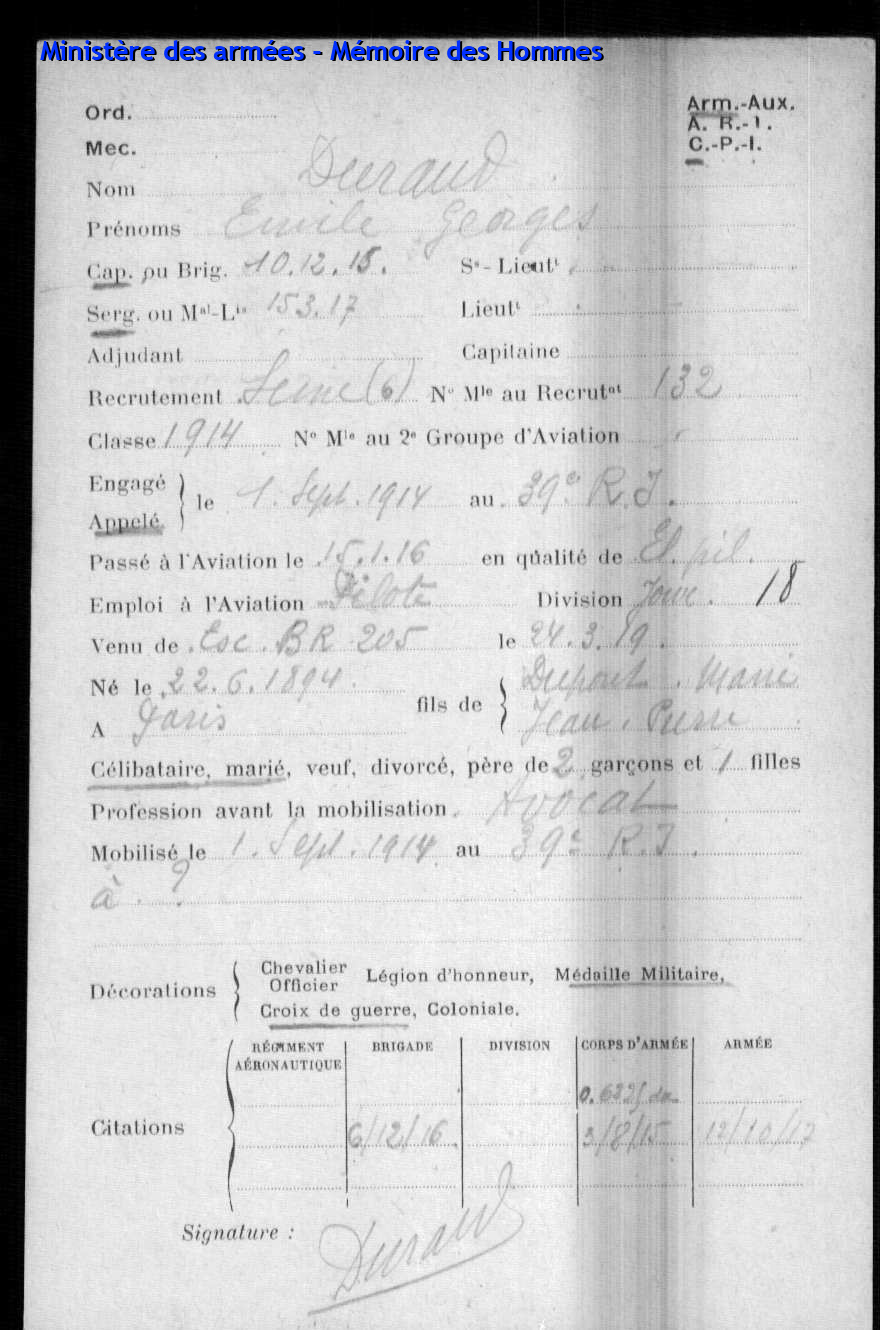 Ministère des armées - Mémoire des Hommes
Ord.
Arm.-Aux.
A. R.-1.
Mec.
C.-P.-I.
Nom Durand
Prénoms Emile Georges
Cap. ou Brig. 10.12.15. Sˢ-Lieutᵗ
Serg. ou Mᵃˡ-Lⁱˢ 15 3.17 Lieutᵗ
Adjudant Capitaine
Recrutement Seine (6) Nº Mˡᵉ au Recrutᵉᵗ 132
Classe 1914 Nº Mˡᵉ au 2ᵉ Groupe d'Aviation
Engagé
Appelé } le 1. Sept. 1914 au 39ᵉ R.I.
Passé à l'Aviation le 15.1.16 en qualité de El. pil.
Emploi à l'Aviation Pilote Division Jouve. 18
Venu de Esc. BR 205 le 24.3.19.
Né le 22.6.1894. fils de { Dupont. Marie
A Paris Jean. Pierre
Célibataire, marié, veuf, divorcé, père de 2 garçons et 1 filles
Profession avant la mobilisation. Avocat
Mobilisé le 1. Sept. 1914 au 39ᵉ R.I.
à . ?
Décorations { Chevalier
Officier Légion d'honneur, Médaille Militaire,
Croix de guerre, Coloniale.
RÉGIMENT
AÉRONAUTIQUE BRIGADE DIVISION CORPS D'ARMÉE ARMÉE
Citations
6/12/16 3/8/15 12/10/17
Signature :
Durand